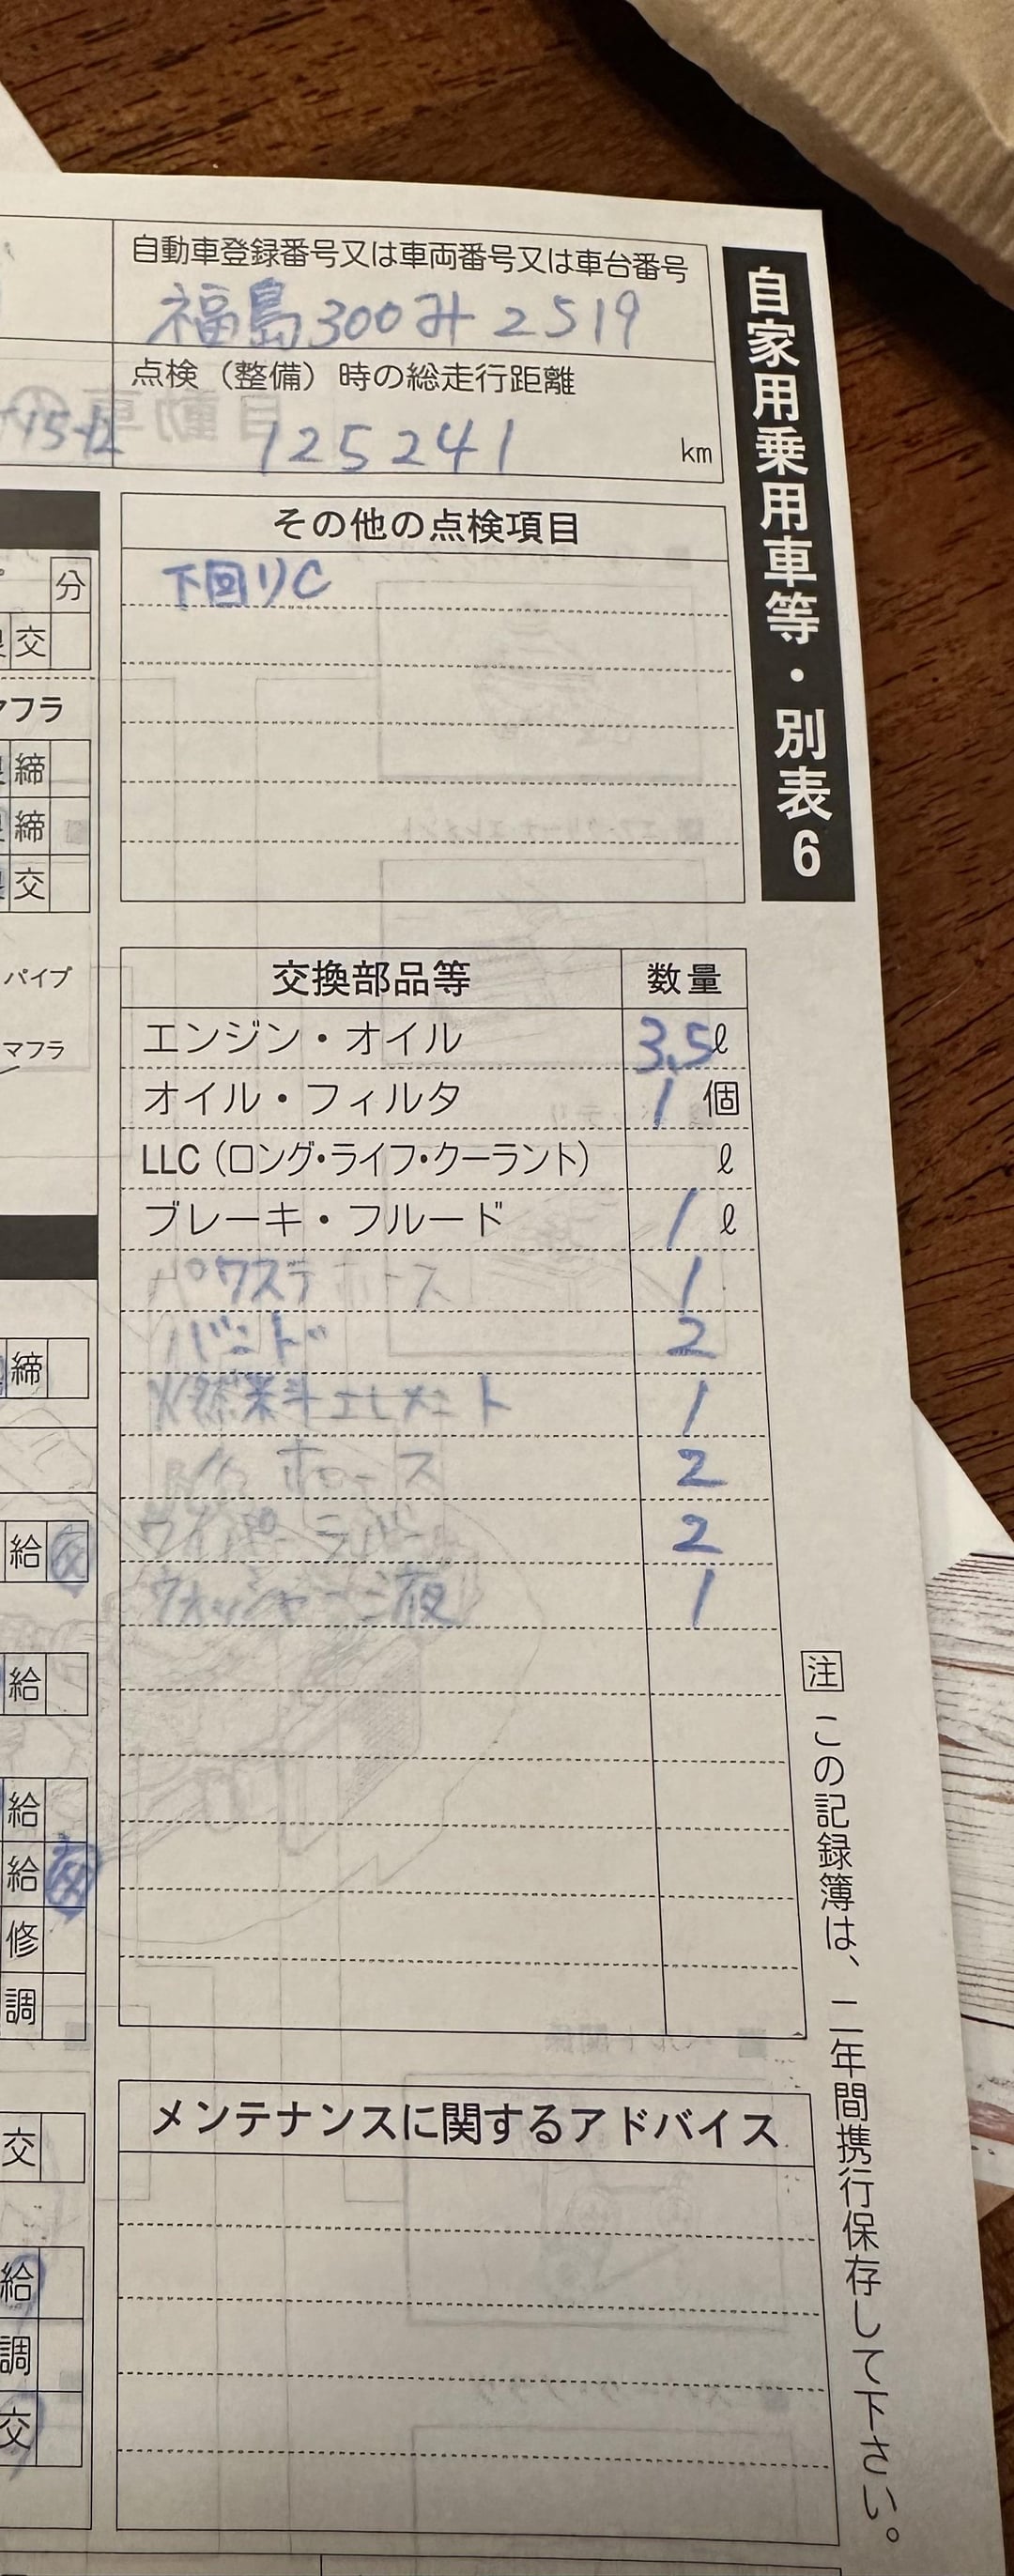 自動車登録番号又は車両番号又は車台番号
福島300み2519
点検（整備）時の総走行距離
125241 km
自家用乗用車等・別表6
その他の点検項目
下回りC
分
交
マフラ
締
締
交
パイプ
マフラ
交換部品等 数量
エンジン・オイル 3.5ℓ
オイル・フィルタ 1個
LLC（ロング・ライフ・クーラント） ℓ
ブレーキ・フルード 1ℓ
パワステホース 1
バンド 2
燃料エレメント 1
ホース 2
ワイパーラバー 2
ウォッシャー液 1
締
給 交
給
給
給 交
修
調
交
給
調
交
メンテナンスに関するアドバイス
注 この記録簿は、二年間携行保存して下さい。